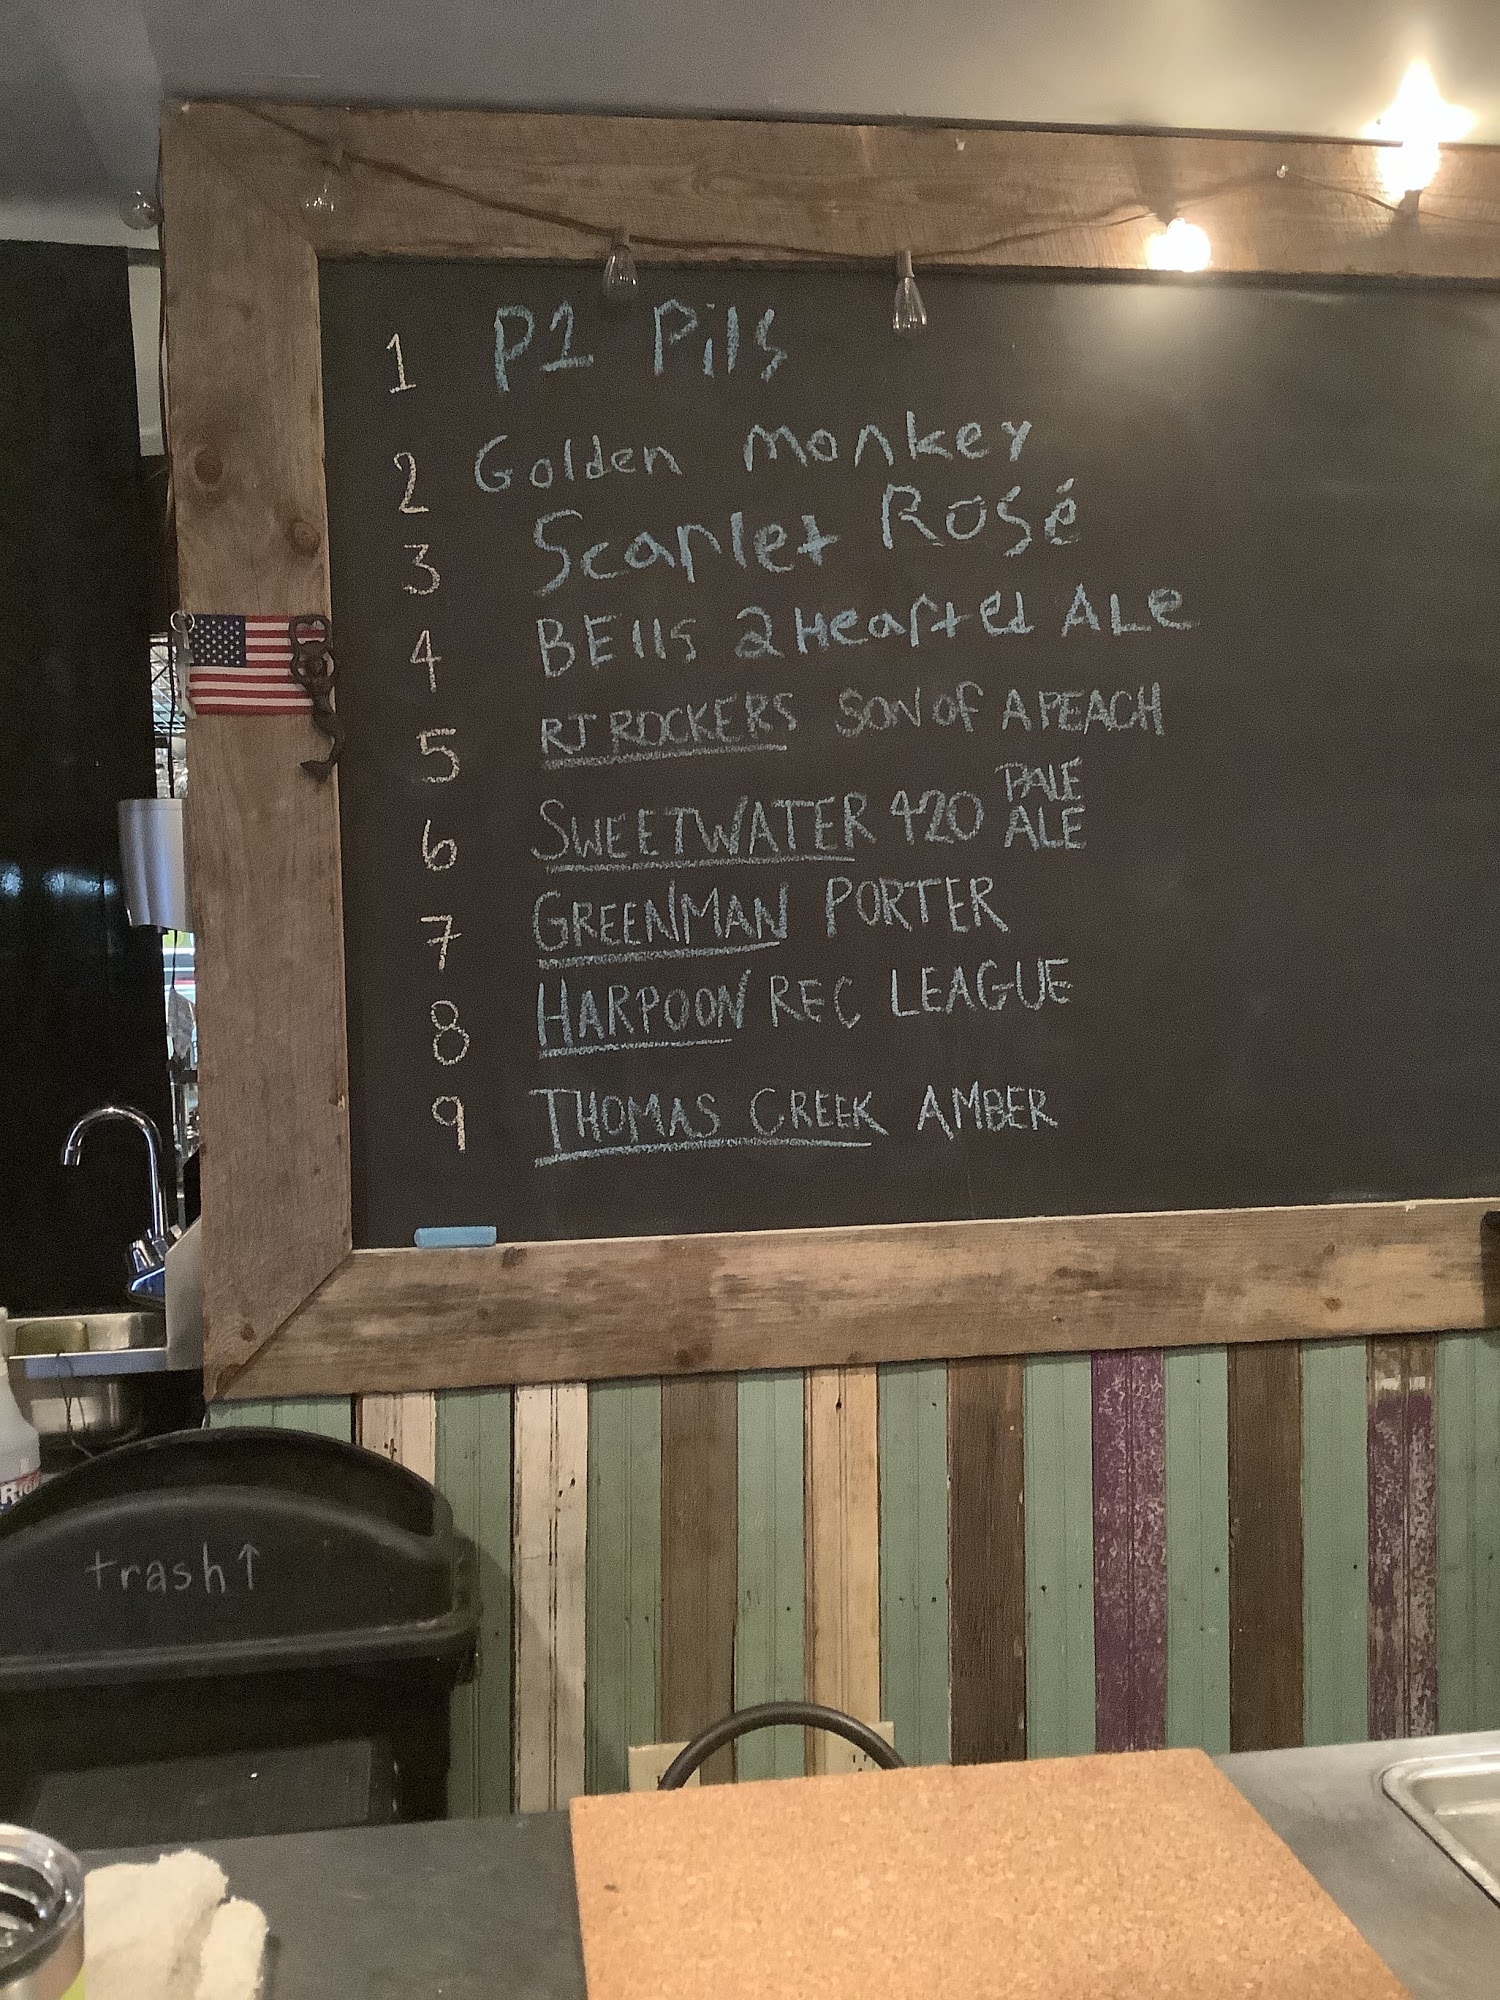 1 P1 Pils
2 Golden Monkey
3 Scarlet Rosé
4 BEllS 2 Hearted ALe
5 RJ ROCKERS SON OF A PEACH
6 SWEETWATER 420 PALE ALE
7 GREENMAN PORTER
8 HARPOON REC LEAGUE
9 THOMAS CREEK AMBER
trash↑